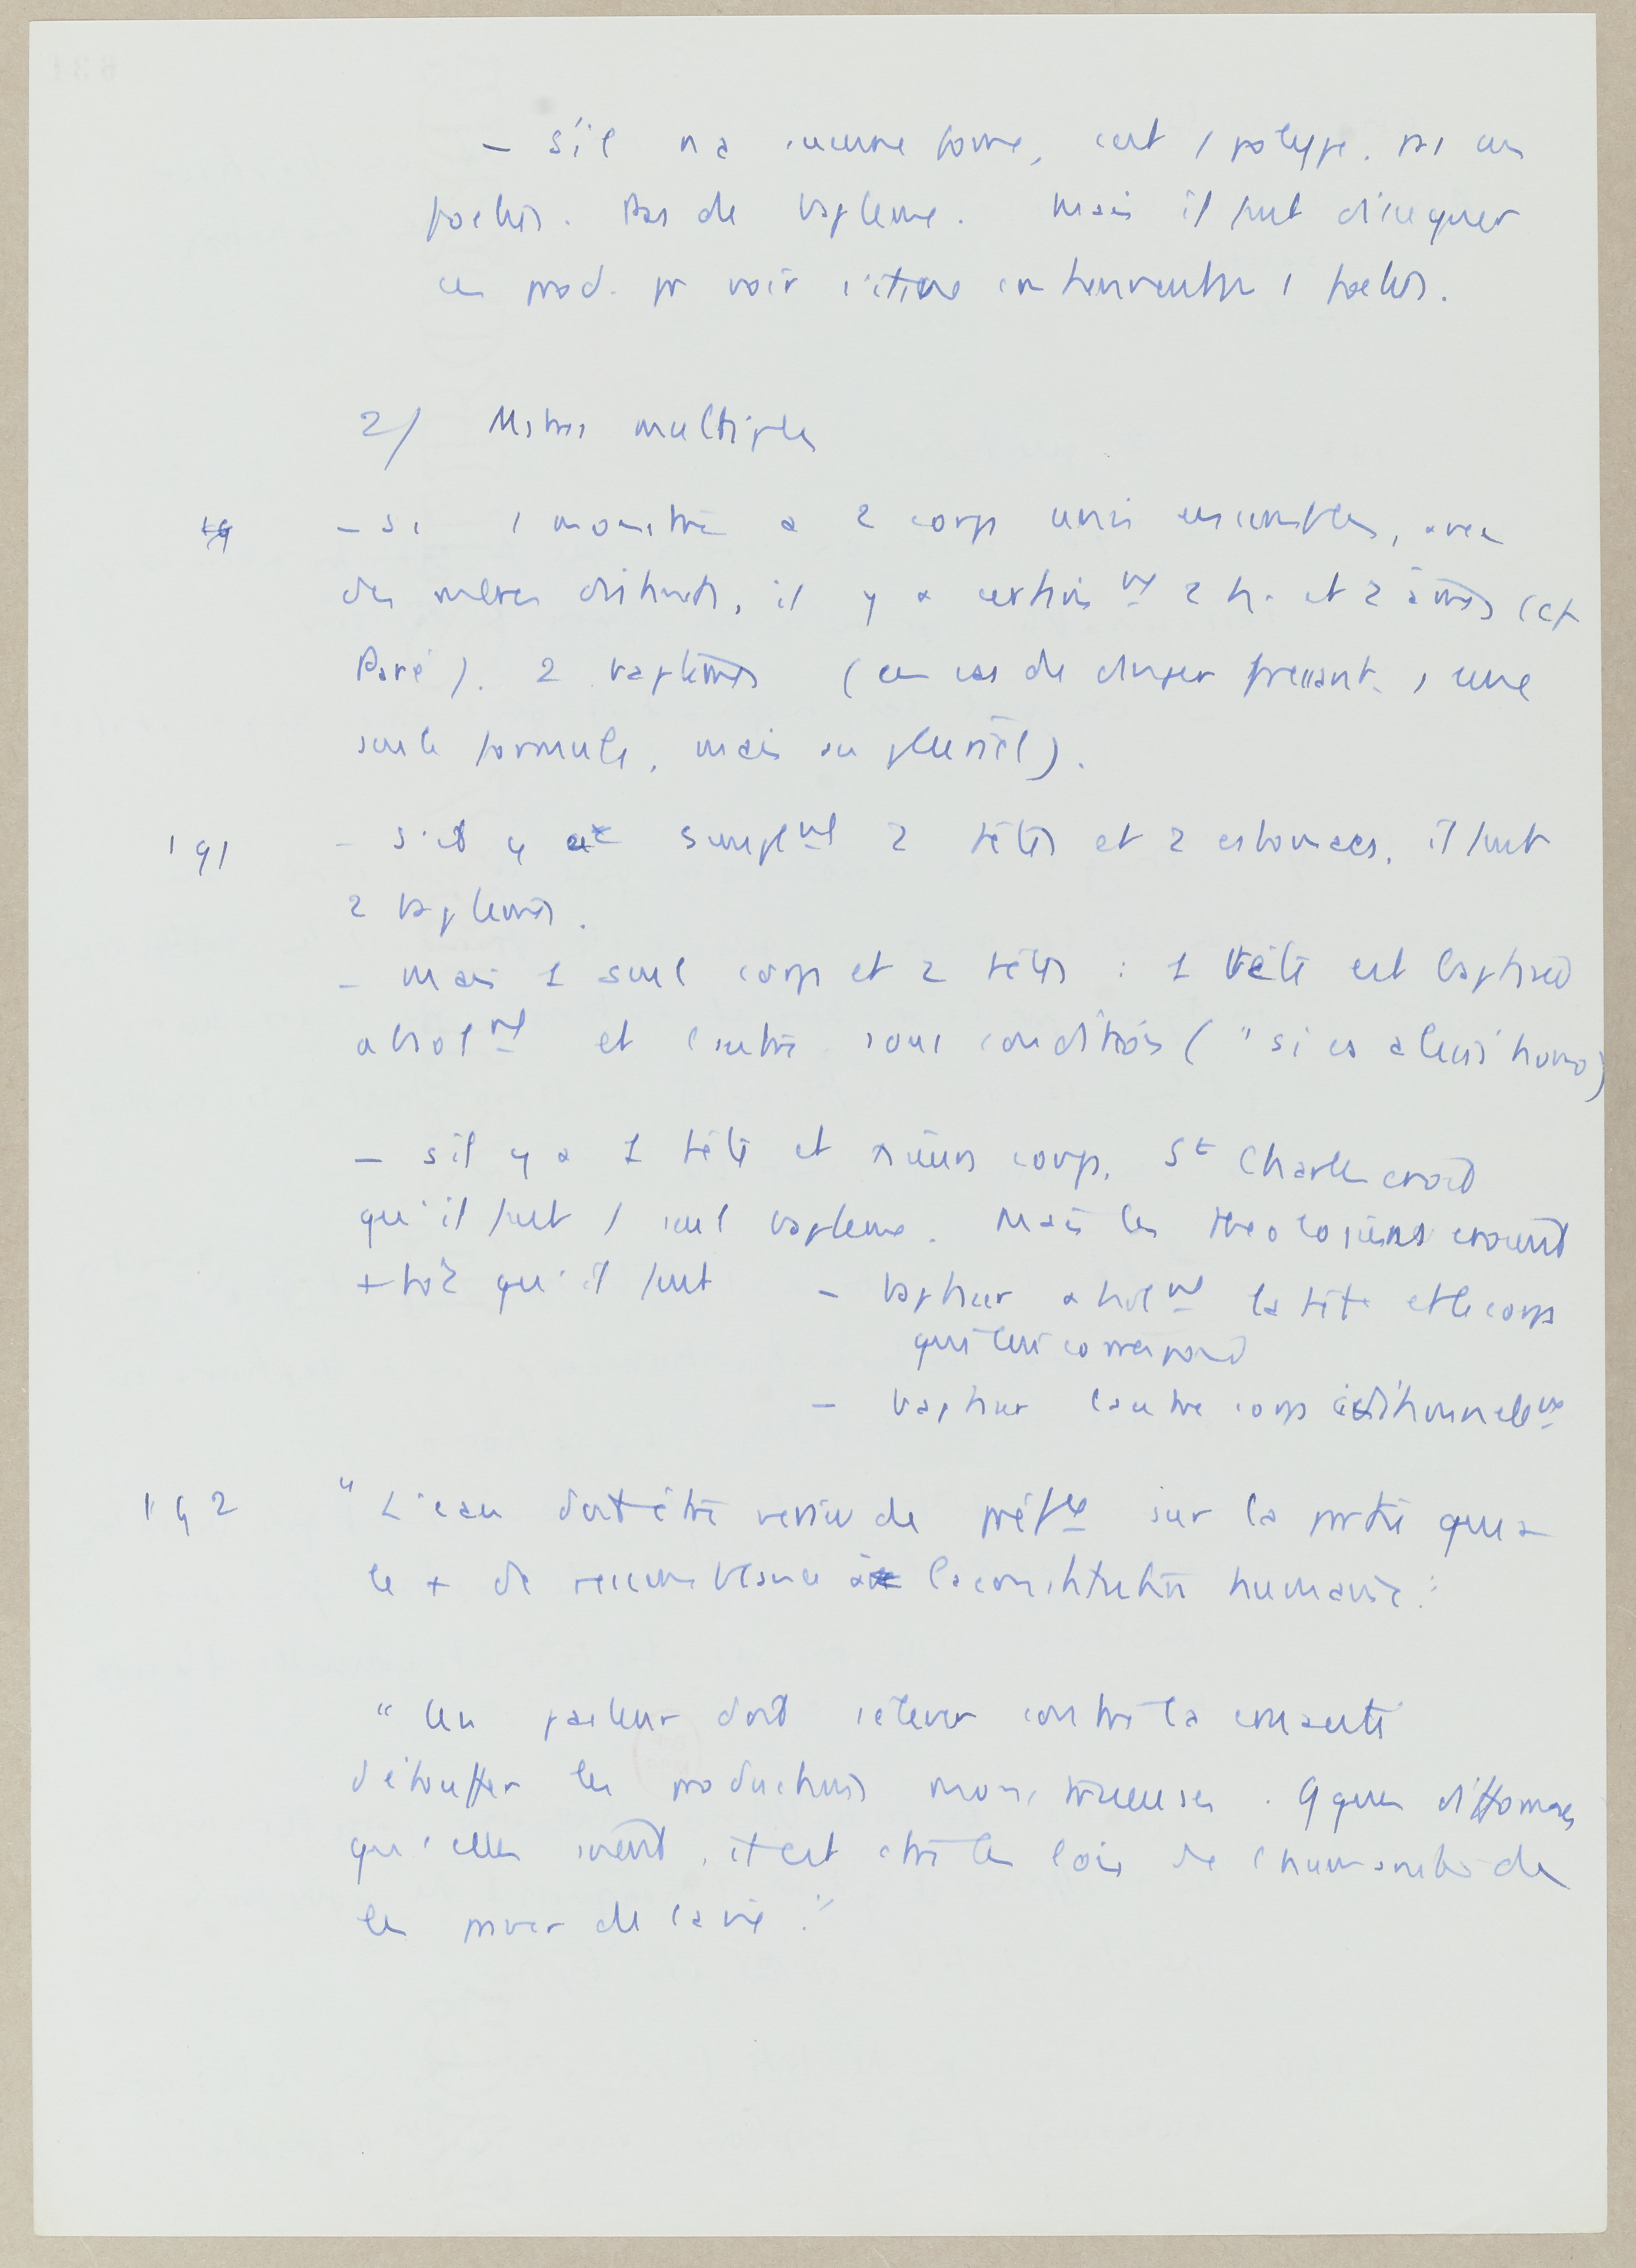 – s'il n'a aucune forme, c'est 1 polype. Pas un
foetus. Pas de baptême. Mais il faut disséquer
ces prod. pr voir si elles contiennent 1 foetus.
2/ Mstres multiples
– Si 1 monstre a 2 corps unis ensembles, avec
des mbres distincts, il y a certain^mt 2 h. et 2 âmes (cf
Paré). 2 baptêmes (en cas de danger pressant, une
seule formule, mais au pluriel).
191 – s'il y a simpl^mt 2 têtes et 2 estomacs, il faut
2 baptêmes.
– mais 1 seul corps et 2 têtes : 1 tête est baptisée
absol^mt et l'autre sous condition ("si es alius homo)
– s'il y a 1 tête et plusieurs corps, St Charles croit
qu'il faut 1 seul baptême. Mais les théologiens croient
+ tôt qu'il faut – baptiser absol^mt la tête et le corps
qui lui correspond
– baptiser l'autre corps conditionnellem^t
192 "L'eau doit être versée de préf^ce sur la partie qui a
le + de ressemblance à la constitution humaine."
"Un pasteur doit s'élever contre la cruauté
d'étouffer les productions monstrueuses. Qques difformes
qu'elles soient, il est ctre les lois de l'humanité de
les priver de la vie."